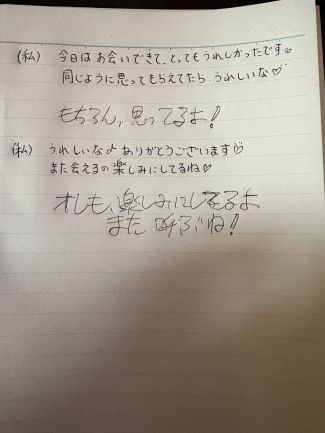 (私) 今日はお会いできて、とってもうれしかったです♡
同じように思ってもらえてたら、うれしいな♡
もちろん、思ってるよ!
(私) うれしいな♪ ありがとうございます♡
また会えるの楽しみにしてるね♡
オレも、楽しみにしてるよ
また呼ぶね!